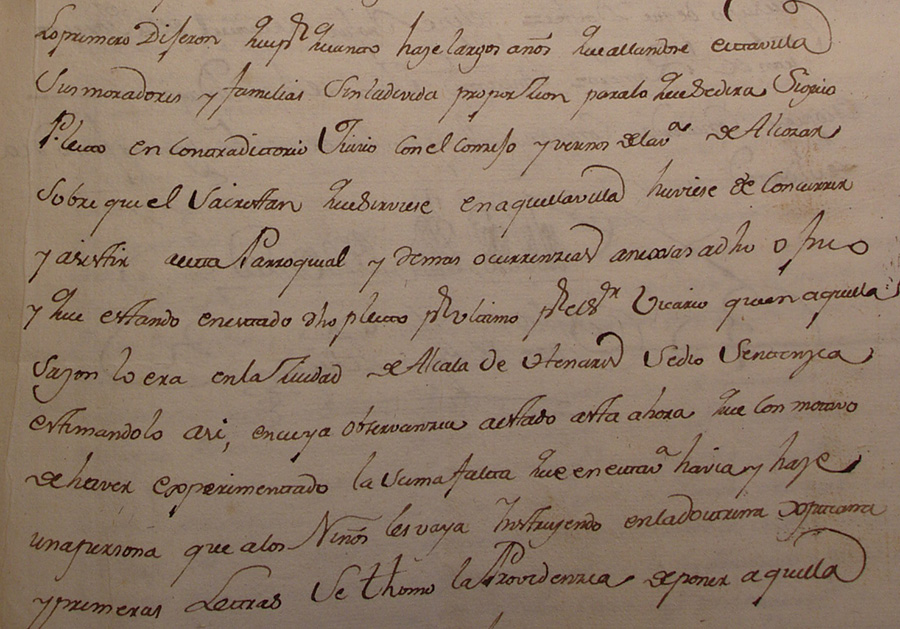 Lo primero Diseron que pr quanto haze largos años que allandose esta villa
Sus moradores y familias Sin la devida proporsion para lo que se dira Siguio
Pleito en Contradictorio Juizio con el Consejo y vecinos de la va de Alcozar
Sobre que el Sacristan que sirviese en aquella villa huviese de Concurrir
y asistir a esta Parroquial y demas ocurrencias anexas a dho ofizio
y que estando en estado dho pleito pr ultimo pr el Sr Vicario que en aquella
Sazon lo era en la Ziudad de Alcala de Henares Se dio Sentenzia
estimandolo asi, en cuya observanzia a estado asta ahora que con motivo
de haver experimentado la Suma falta que en esta va havia y haze
una persona que a los Niños les vaya Ynstruyendo en la doctrina Xptiana
y primeras Letras Se thomo la Providencia de poner aquella